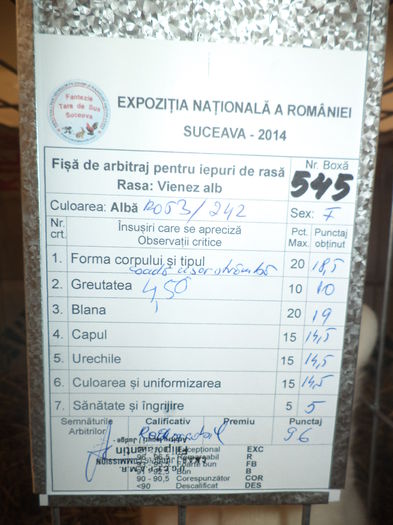 Fantezie
Tara de Sus
Suceava
EXPOZIȚIA NAȚIONALĂ A ROMÂNIEI
SUCEAVA - 2014
Fișă de arbitraj pentru iepuri de rasă
Rasa: Vienez alb
Nr. Boxă
545
Culoarea: Albă RO53/242
Sex: F
Nr. crt.
Însușiri care se apreciză
Observații critice
Pct. Max.
Punctaj obținut
1. Forma corpului și tipul 20 18,5
coadă ușor strâmbă
2. Greutatea 4,50 10 10
3. Blana 20 19
4. Capul 15 14,5
5. Urechile 15 14,5
6. Culoarea și uniformizarea 15 14,5
7. Sănătate și îngrijire 5 5
Semnăturile Arbitrilor
Calificativ Premiu Punctaj
96
Excepțional EXC
R
bun FB
Bun B
90 - 90,5 Corespunzător COR
<90 Descalificat DES